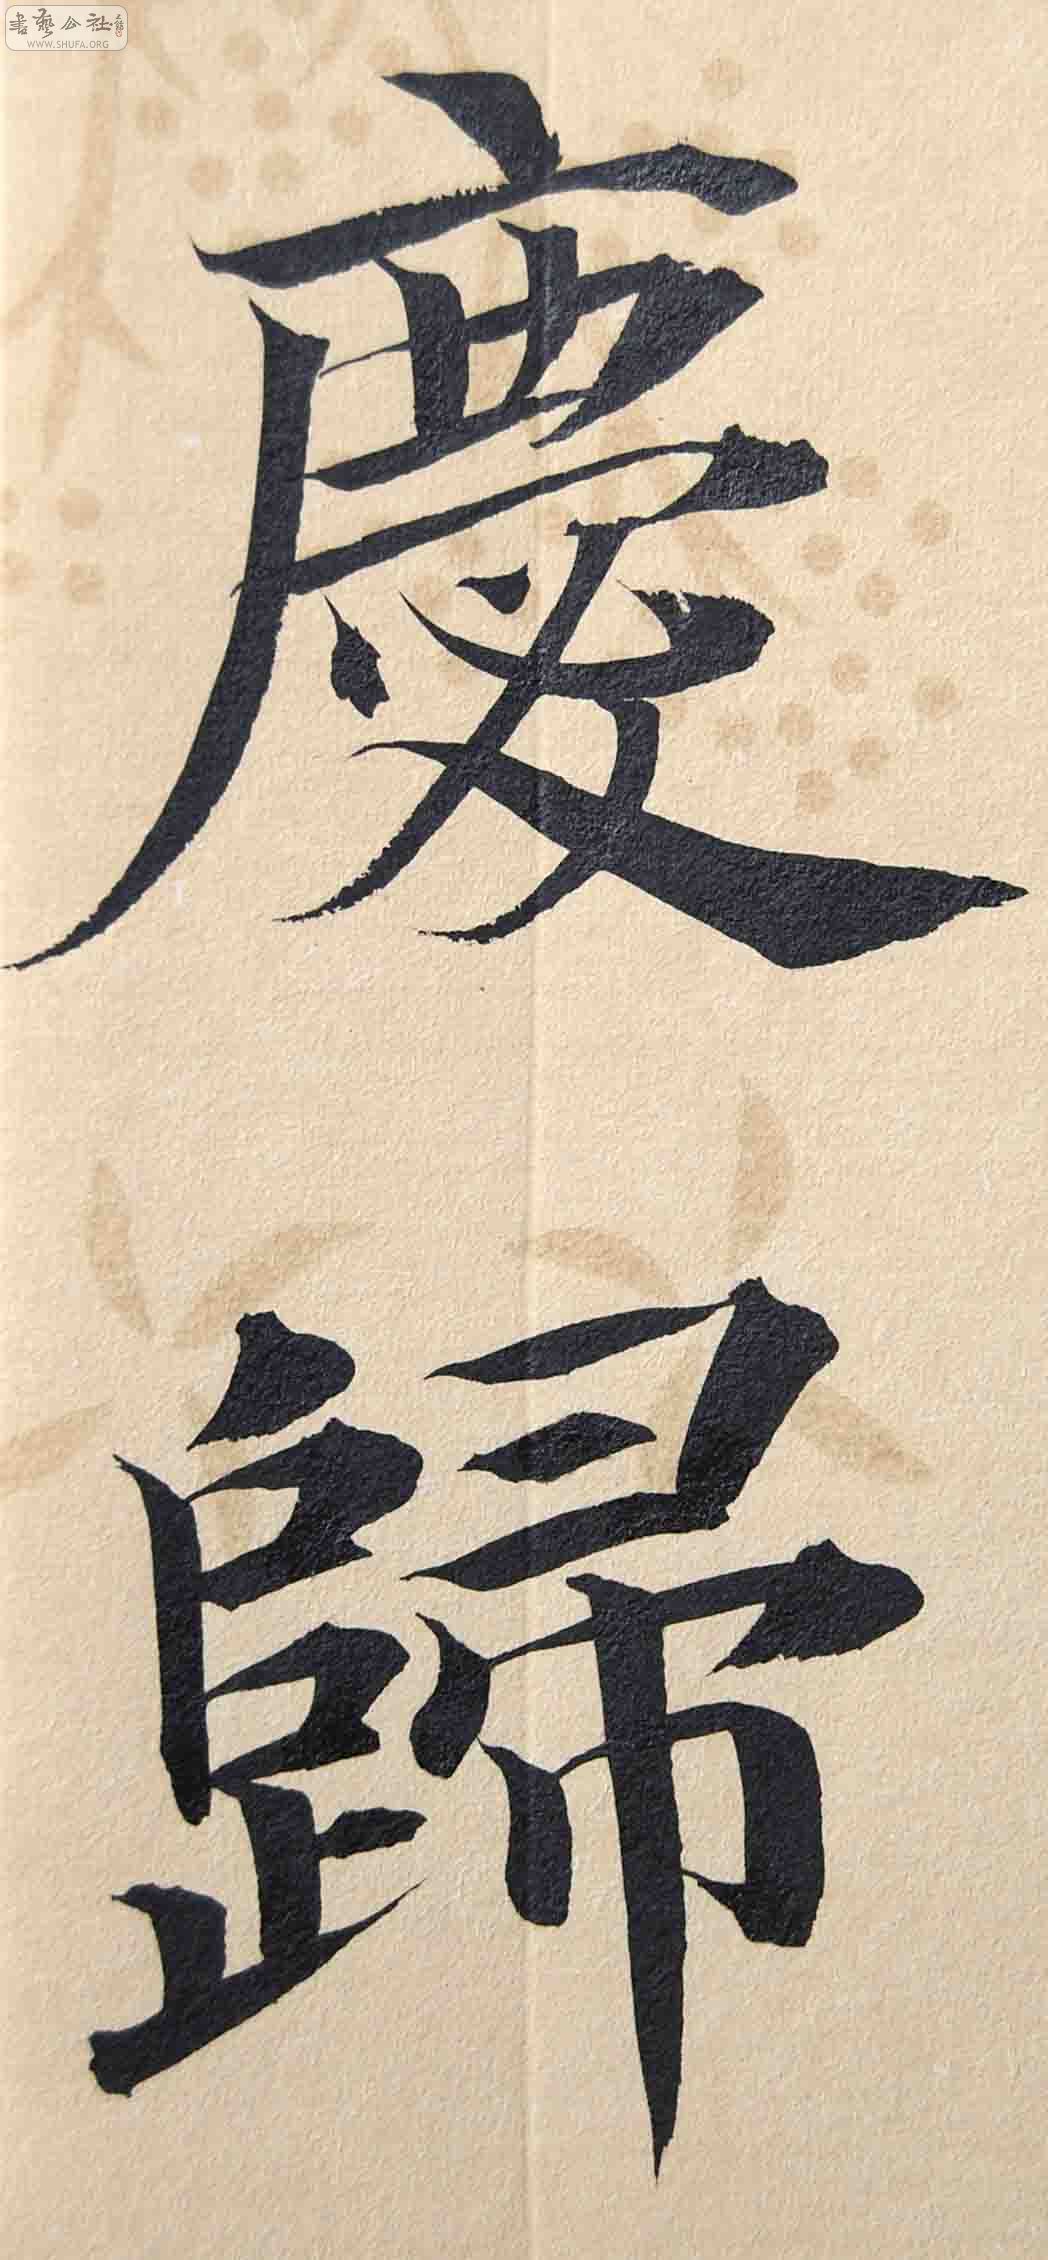 書藝公社
WWW.SHUFA.ORG
慶
歸